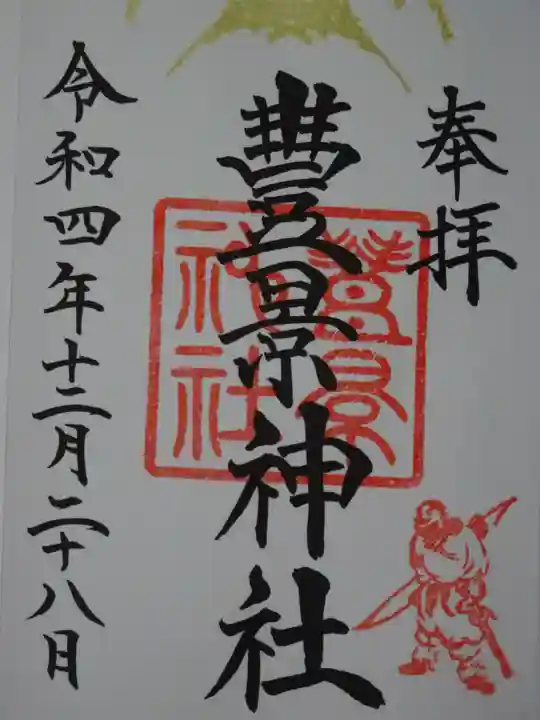 奉拝
豊景神社
豊景神社
令和四年十二月二十八日